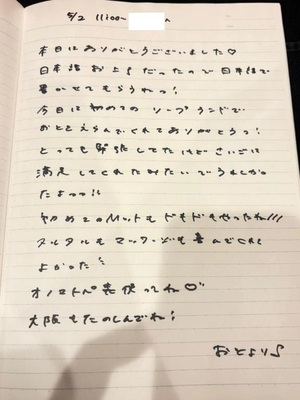 5/2 11:00~
本日はありがとうございました♡
日本語お上手だったので日本語で
書かせてもらうねっ!
今日は初めてのソープランドで
おとをえらんでくれてありがとうっ!
とっても緊張してたけどさいごは
満足してくれたみたいでうれしかっ
たよっっ!!
初めてのMットもドキドキやったね///
ヌルヌルもマッサージも喜んでくれて
よかった
オノマトペ表使ってね♡
大阪もたのしんでね!
おとより